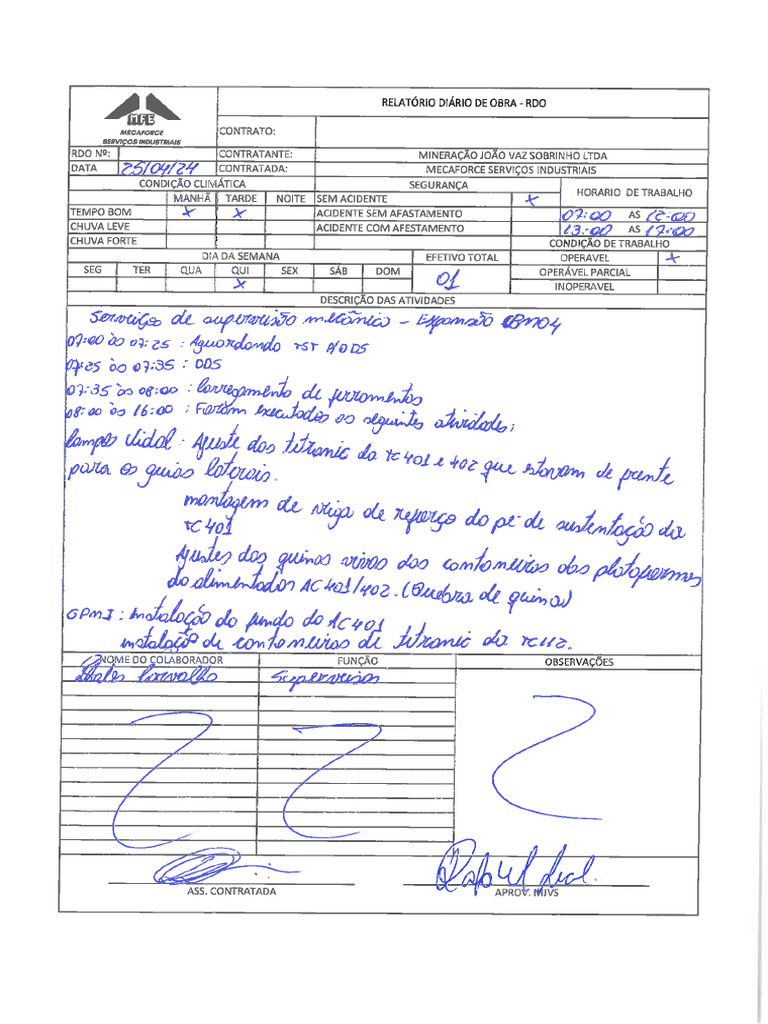 RELATÓRIO DIÁRIO DE OBRA - RDO
MFE
MEGAFORCE
SERVIÇOS INDUSTRIAIS
CONTRATO:
RDO Nº:
CONTRATANTE: MINERAÇÃO JOÃO VAZ SOBRINHO LTDA
DATA 25/04/24 CONTRATADA: MECAFORCE SERVIÇOS INDUSTRIAIS
CONDIÇÃO CLIMÁTICA SEGURANÇA HORARIO DE TRABALHO
MANHÃ TARDE NOITE SEM ACIDENTE x
TEMPO BOM x x ACIDENTE SEM AFASTAMENTO 07:00 AS 12:00
CHUVA LEVE ACIDENTE COM AFESTAMENTO 13:00 AS 17:00
CHUVA FORTE CONDIÇÃO DE TRABALHO
DIA DA SEMANA EFETIVO TOTAL OPERAVEL x
SEG TER QUA QUI SEX SÁB DOM 01 OPERÁVEL PARCIAL
x INOPERAVEL
DESCRIÇÃO DAS ATIVIDADES
Serviços de supervisão mecânica - Expansão
07:00 às 07:25 : Aguardando TST P/DDS
07:25 às 07:35 : DDS
07:35 às 08:00 : Carregamento de ferramentas
08:00 às 16:00 : Foram executados as seguintes atividades:
Vidal : Ajuste das tetranic da TC401 e 402 que estavam de frente
para as guias laterais.
montagem de viga de reforço do pé de sustentação da
TC401
Ajustes das quinas vivas das cantoneiras das plataformas
do alimentador AC401/402. (Quebra de quinas)
GPMI : Instalação do fundo do AC401
instalação de cantoneiras de tetranic da TC112.
NOME DO COLABORADOR FUNÇÃO OBSERVAÇÕES
Thales Carvalho Supervisor
ASS. CONTRATADA
Rafael Leal.
APROV. MJVS